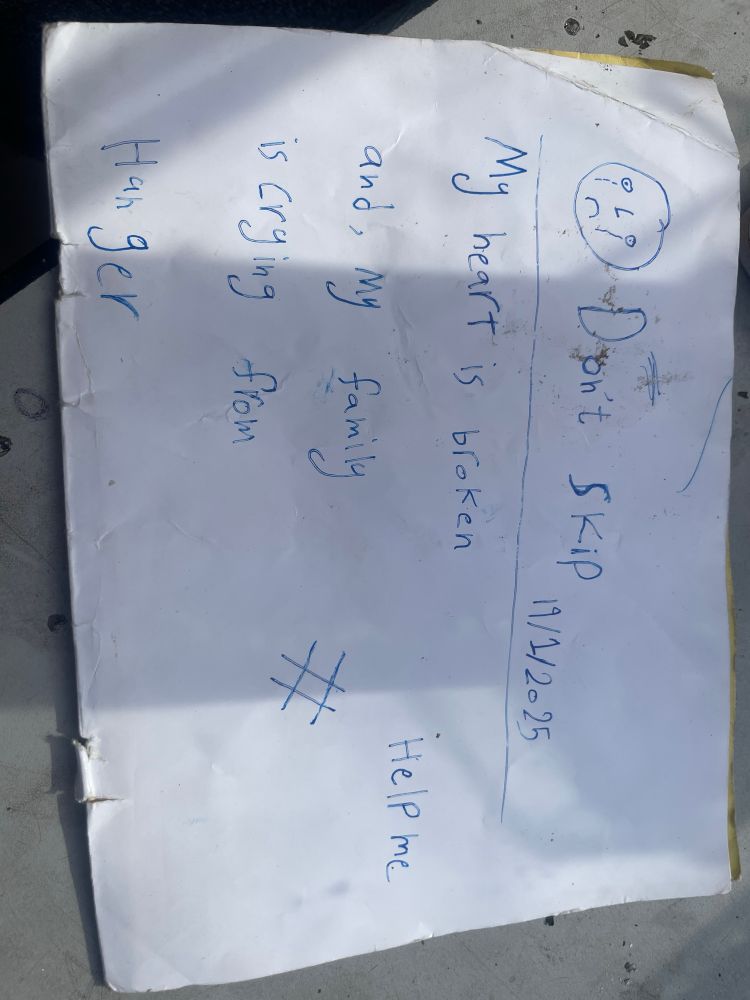 Don't Skip
19/1/2025
My heart is broken
and, My family
is Crying from
Hunger
Help me
#